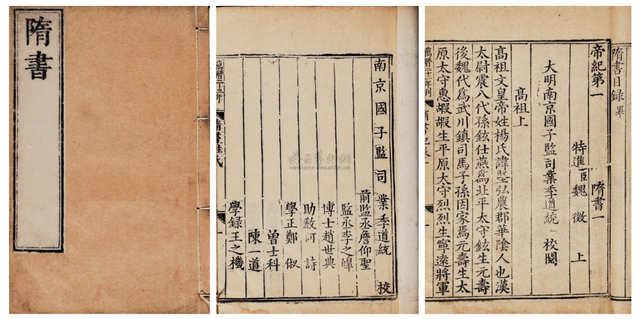 隋書
南京國子監司業季道統 校
前監丞詹仰聖
監丞李之
博士趙世典
助教 詩
學正鄭
曾士科
陳一道
學錄王之機
隋書目錄畢
帝紀第一 隋書一
特進臣魏徵上
大明南京國子監司業季道統 校閱
高祖上
高祖文皇帝姓楊氏諱堅弘農郡華陰人也漢
太尉震八代孫鉉仕燕爲北平太守鉉生元壽
後魏代爲武川鎮司馬子孫因家焉元壽生太
原太守惠嘏嘏生平原太守烈烈生寧遠將軍